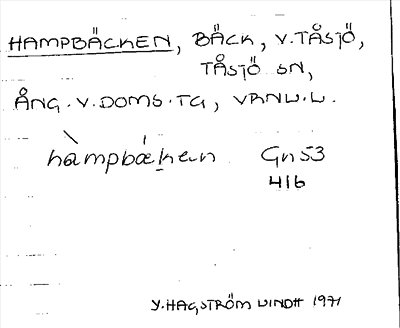 HAMPBÄCKEN, BÄCK, V. TÅSJÖ,
TÅSJÖ SN,
ÅNG. V. DOMS. TG, VÄNL. L.
hàmpbǽken Gn 53
416
Y. HAGSTRÖM LINDH 1971